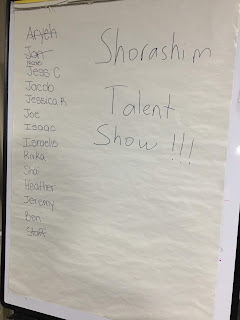 Aryeh
Jess C
Jacob
Jessica R
Joe
Isaac
Israelis
Rivka
Shai
Heather
Jeremy
Ben
Staff
Shorashim
Talent
Show !!!